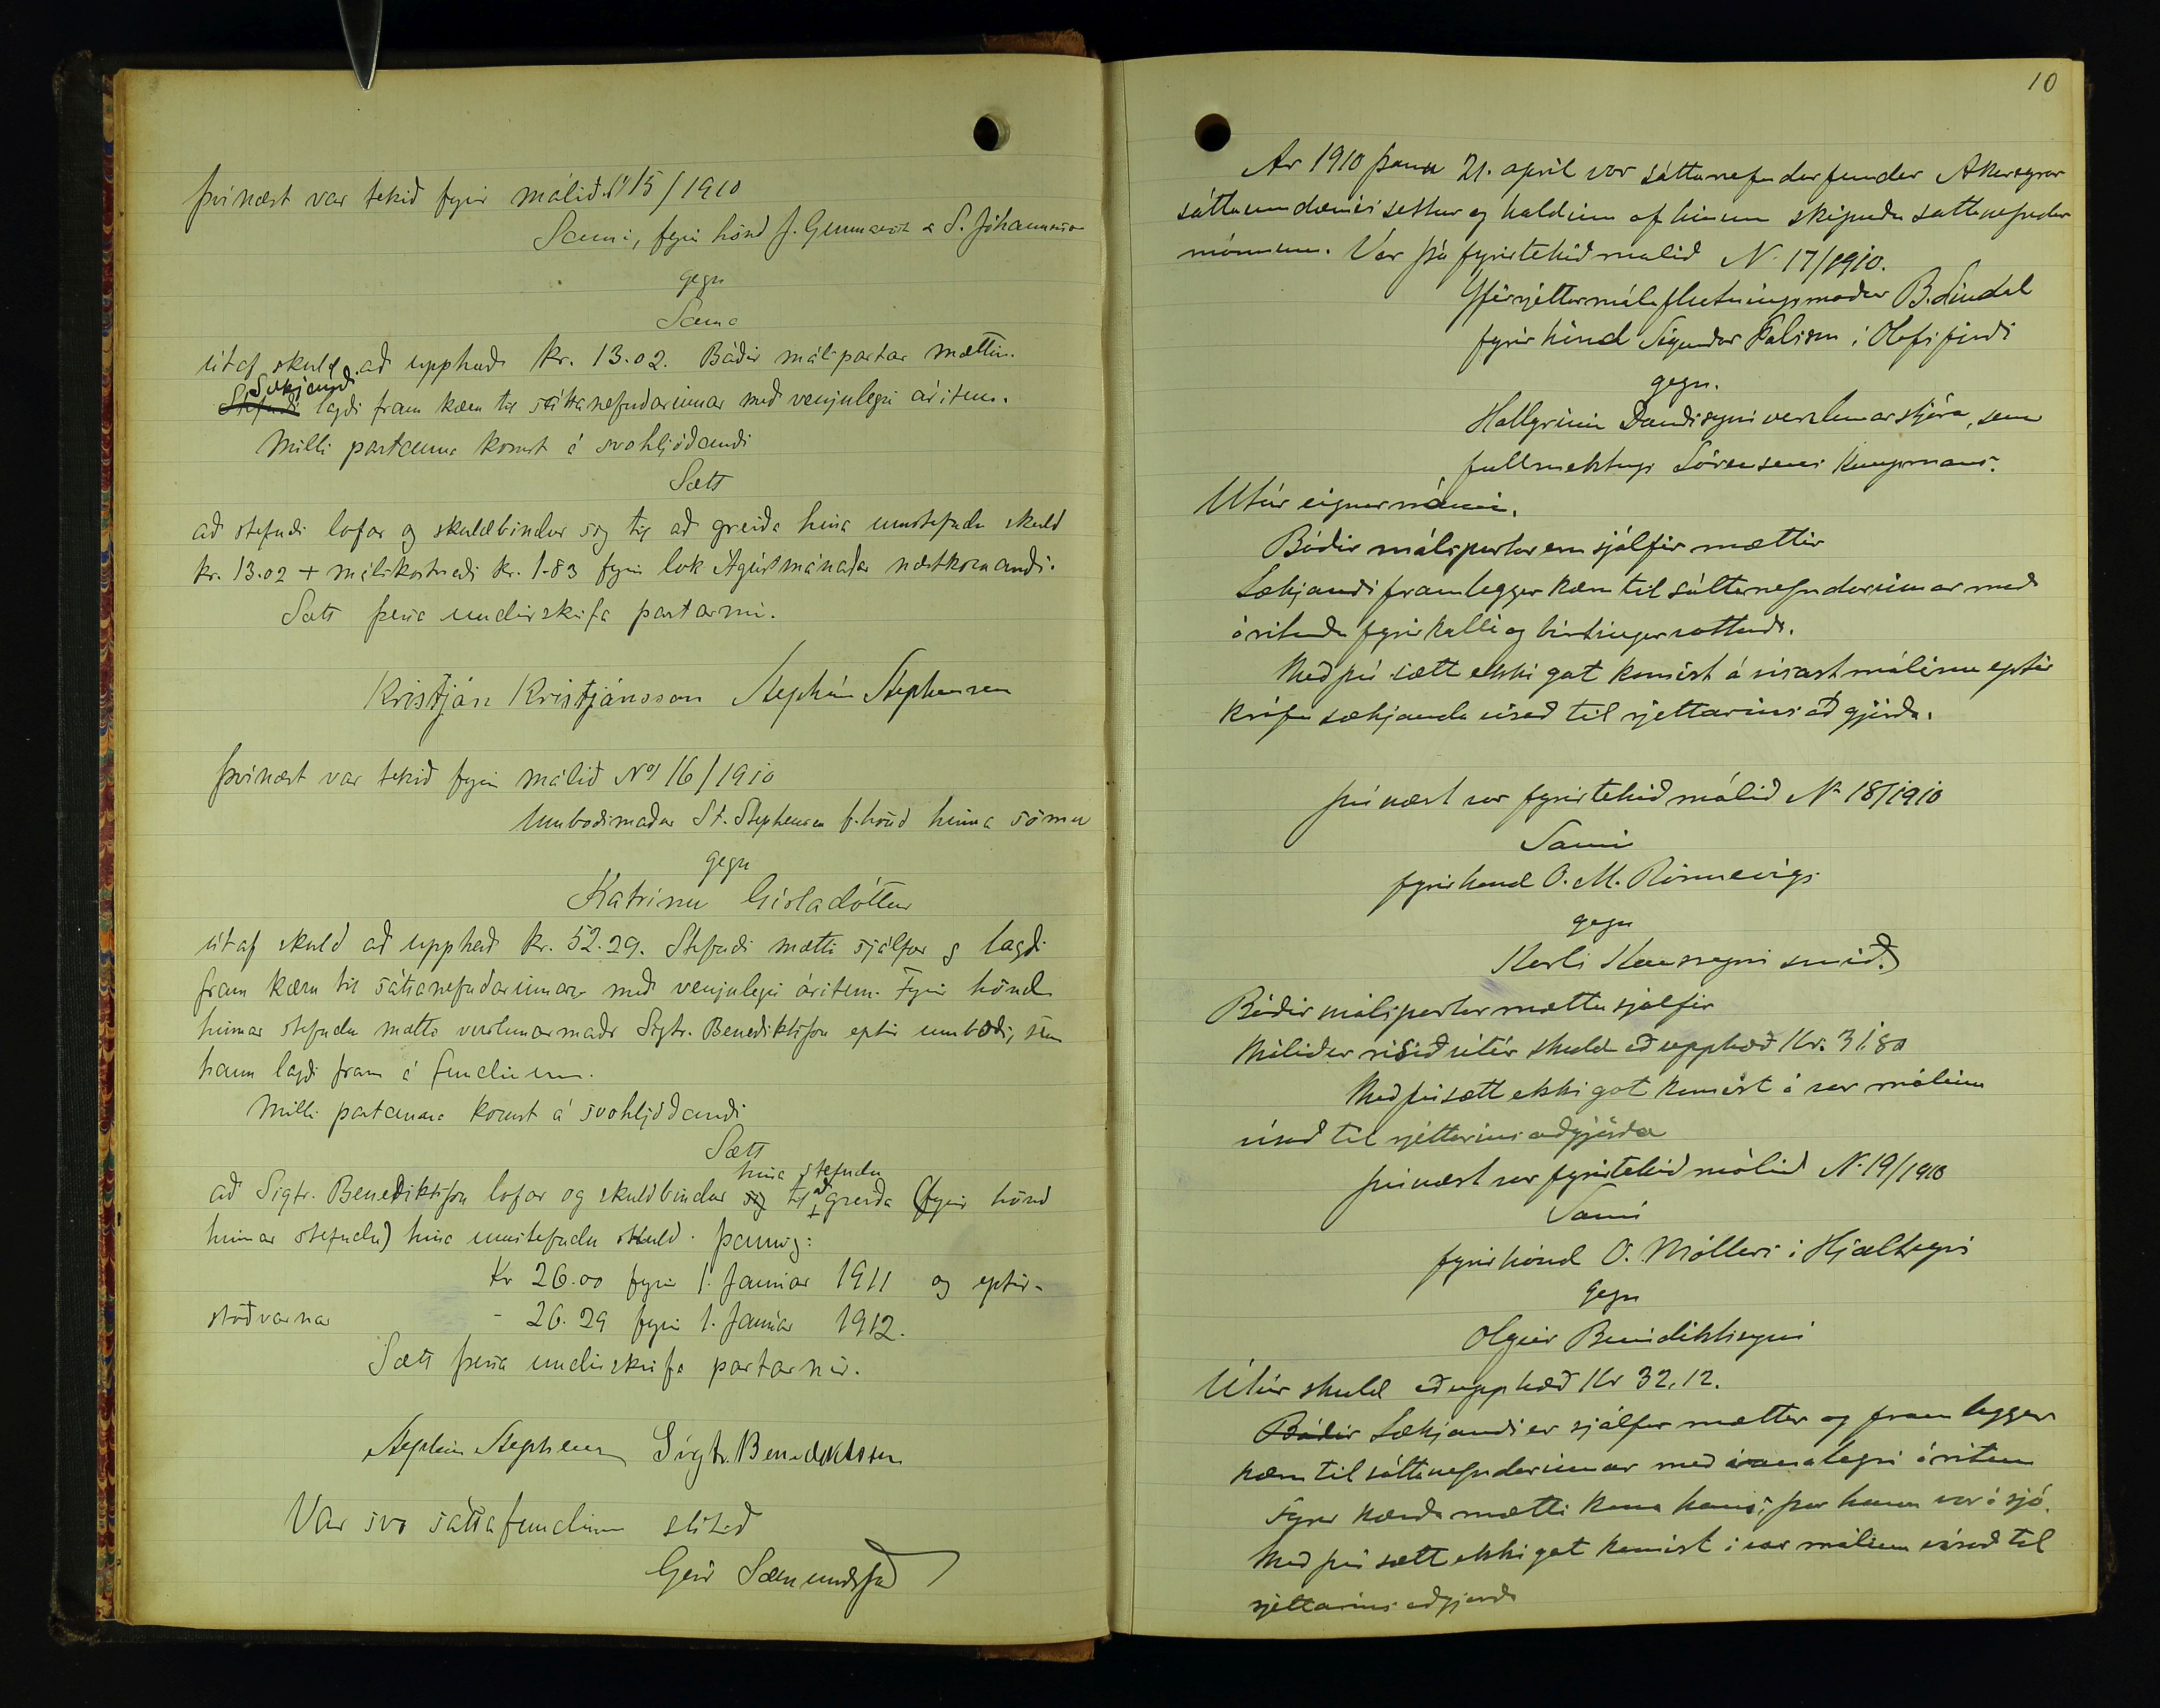 því næst var tekið fyrir málið No 15/1910
Sami, fyrir hönd J. Gunnars & S. Jóhannss.
gegn
Sama
útaf skuld að upphæð kr. 13.02. Báðir málspartar mættir.
Stefndi Sækjandi lagði fram kæru til sáttanefndarinnar með venjulegri áritun.
Milli partanna komst á svohljóðandi
Sætt
að stefndi lofar og skuldbindur sig til að greiða hina umstefndu skuld
kr. 13.02 + málskostnaði kr. 1.83 fyrir lok Ágústmánaðar næstkomandi.
Sætt þessa undirskrifa partarnir.
Kristján Kristjánsson Stephán Stephensen
Þvínæst var tekið fyrir málið No 16/1910
Umboðsmaður St. Stephensen f. hönd hinna sömu
gegn
Katrínu Gísladóttur
útaf skuld að upphæð kr. 52.29. Stefndi mætti sjálfur og lagði
fram kæru til sáttanefndarinnar með venjulegri áritun. Fyrir hönd
hinnar stefndu mætti verslunarmaðr Sigtr. Benediktsson eptir umboði, sem
hann lagði fram á fundinum.
Milli partanna komst á svohljóðandi
Sætt
að Sigtr. Benediktsson lofar og skuldbindur sig hina stefndu til að greiða (fyrir hönd
hinnar stefndu) hina umstefndu skuld þannig:
Kr 26.00 fyrir 1. Janúar 1911 og eptir-
stöðvarnar - 26.29 fyrir 1. Janúar 1912.
Sætt þessa undirskrifa partarnir.
Stephán Stephensen Sigtr. Benediktsson
Var svo sáttafundinum slitið
Geir Sæmundsson
10
Ár 1910 þann 21. apríl var sáttanefndarfundur Akureyrar
sáttaumdæmis settur og haldinn af hinum skipuðu sáttanefndar
mönnum. Var þá fyrirtekið málið No 17/1910.
Yfirrjettarmálaflutningsmaður B. Líndal
fyrir hönd Sigurdar í Olafsfirði
gegn.
Hallgrími Davíðssyni verzlunarstjóra, sem
fullmektugs Sörensens kaupmans.
Útúr eignarnámi.
Báðir málspartar eru sjálfir mættir
Sækjandi framleggur kæru til sáttanefndarinnar með
árituðu fyrirkalli og birtingarvottorði.
Með því sætt ekki gat komist á visast málinu eptir
kröfu sækjanda vísað til rjettarins að gjörða.
því næst var fyrirtekið málið No 18/1910
Sami
fyrir hönd O. M. Rönnevigs
gegn
Karli smið.
Báðir málspartar mættu sjálfir
Málið er risið útúr skuld að upphæð Kr. 31.80
Með því sætt ekki gat komist á var málinu
vísað til rjettarins aðgjörða
því næst var fyrirtekið málið No 19/1910
Sami
fyrir hönd O. Möllers í Hjalteyri
gegn
Olgeir Benidiktssyni
Útúr skuld að upphæð Kr 32,12.
Báðir Sækjandi er sjálfur mættur og fram leggur
kæru til sáttanefndarinnar með vanalegri áritun
Fyrir kærða mætti kona hans, þar hann var á sjó.
Með því sætt ekki gat komist á var málinu vísað til
rjettarins aðgjörða